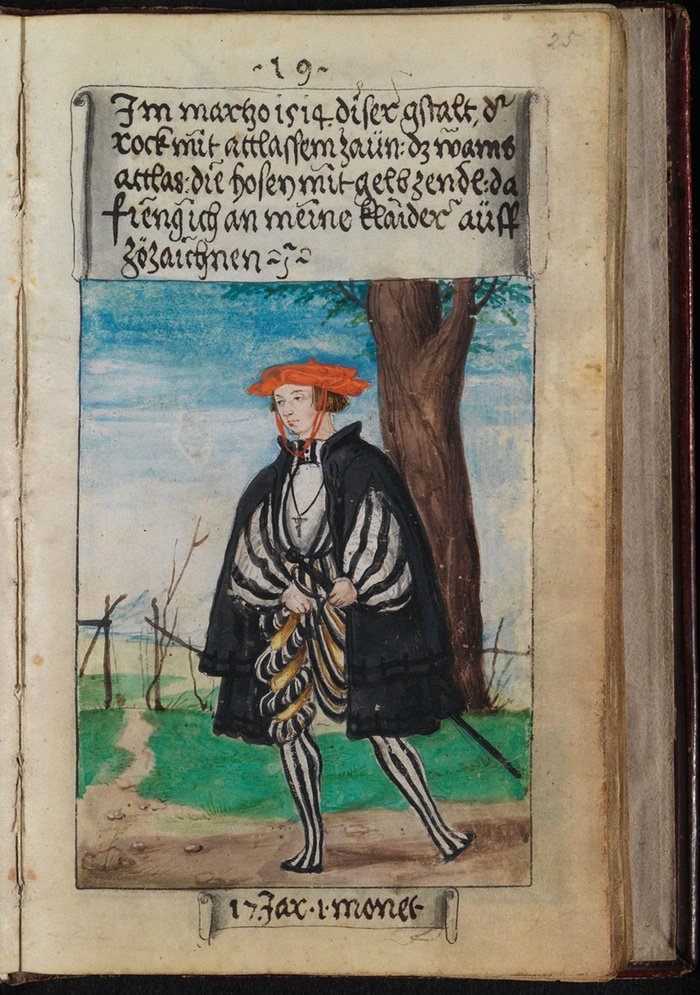 25
·19·
Im martzo 1514. diser gstalt, dr
rock mit attlassem zaün: dz wams
attlas: die hosen mit gelb zendl: da
fieng ich an meine klaider auff
zözaichnen
17 Jar · 1 · monet